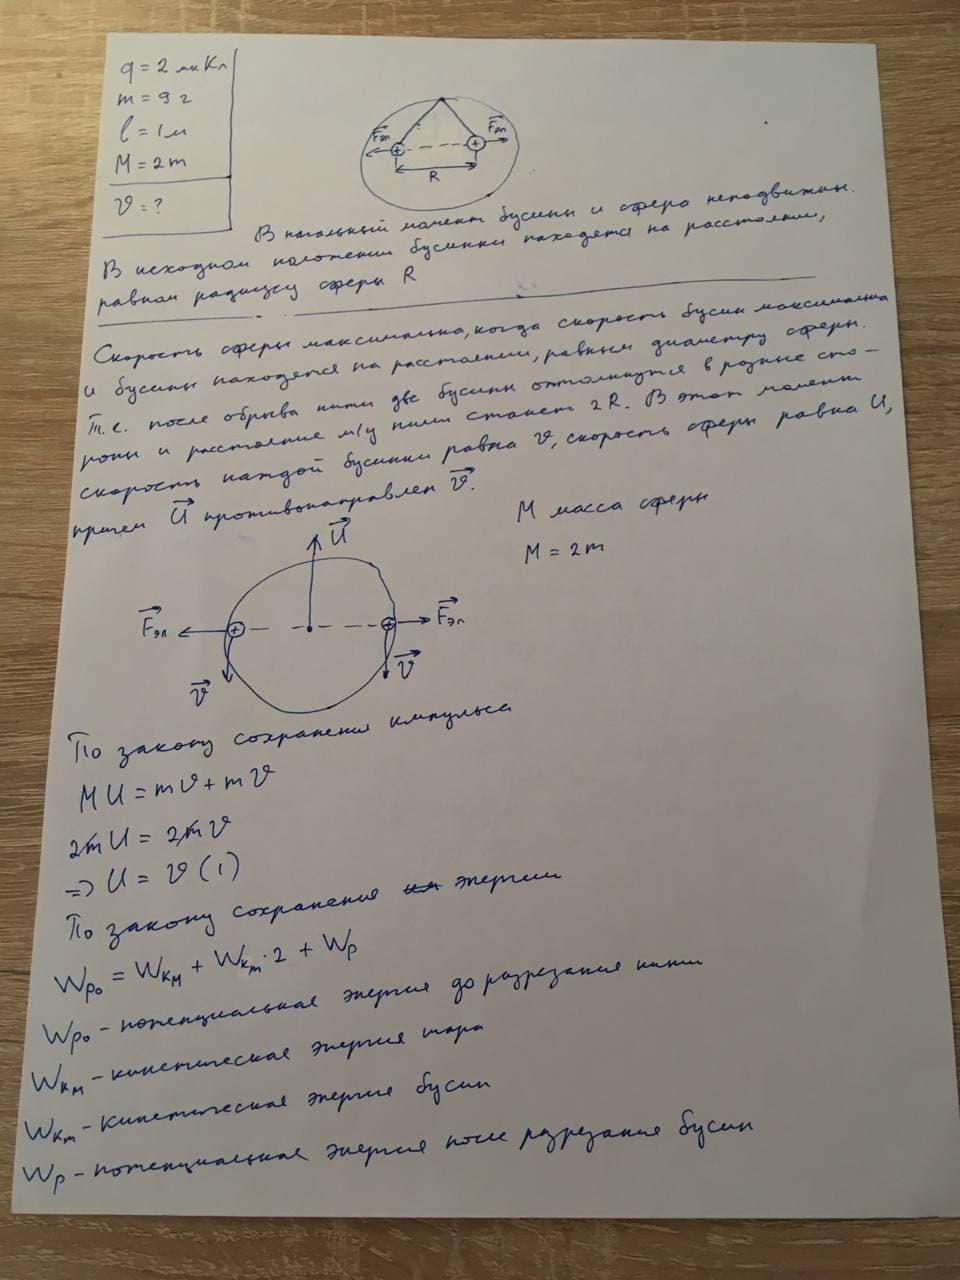 q = 2 мкКл
m = 9 г
l = 1 м
M = 2m
v = ?
Fэл
Fэл
+
+
R
В начальный момент бусины и сфера неподвижны.
В исходном положении бусинки находятся на расстоянии,
равном радиусу сферы R
Скорость сферы максимальна, когда скорость бусин максимальна
и бусины находятся на расстоянии, равным диаметру сферы.
Т.е. после обрыва нити две бусины оттолкнутся в разные сто-
роны и расстояние м/у ними станет 2R. В этот момент
скорость каждой бусинки равна v, скорость сферы равна U,
причем U противонаправлен v.
M масса сферы
M = 2m
U
Fэл
+
+
Fэл
v
v
По закону сохранения импульса
MU = mv + mv
2mU = 2mv
=> U = v (1)
По закону сохранения энергии
Wp₀ = Wкм + Wкm · 2 + Wp
Wp₀ - потенциальная энергия до разрезания нити
Wкм - кинетическая энергия шара
Wкm - кинетическая энергия бусин
Wp - потенциальная энергия после разрезания бусин